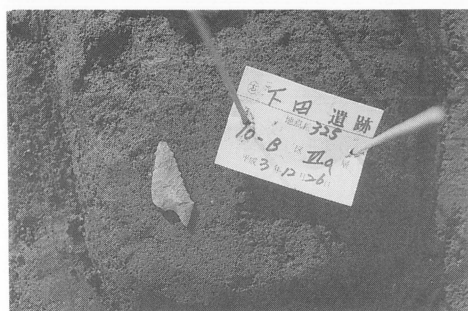 下田遺跡
地点 325
10-B 区 Ⅶa 層
平成3年12月26日